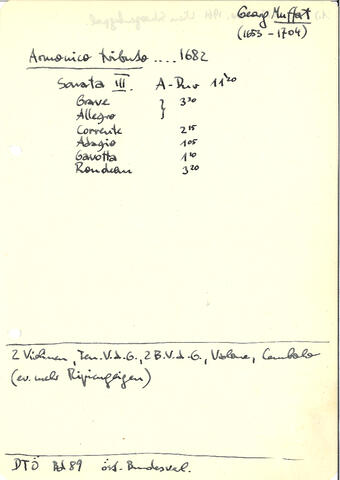 Georg Muffat
(1653 - 1704)
Armonico tributo .... 1682
Sonata III. A-Dur 11'20
Grave } 3 30
Allegro
Corrente 2 15
Adagio 1 05
Gavotta 1 10
Rondeau 3 20
2 Violinen, Ten.V.d.G., 2 B.V.d.G., Violone, Cembalo
(ev. mehr Ripiengeigen)
DTÖ Bd 89 öst. Bundesverl.